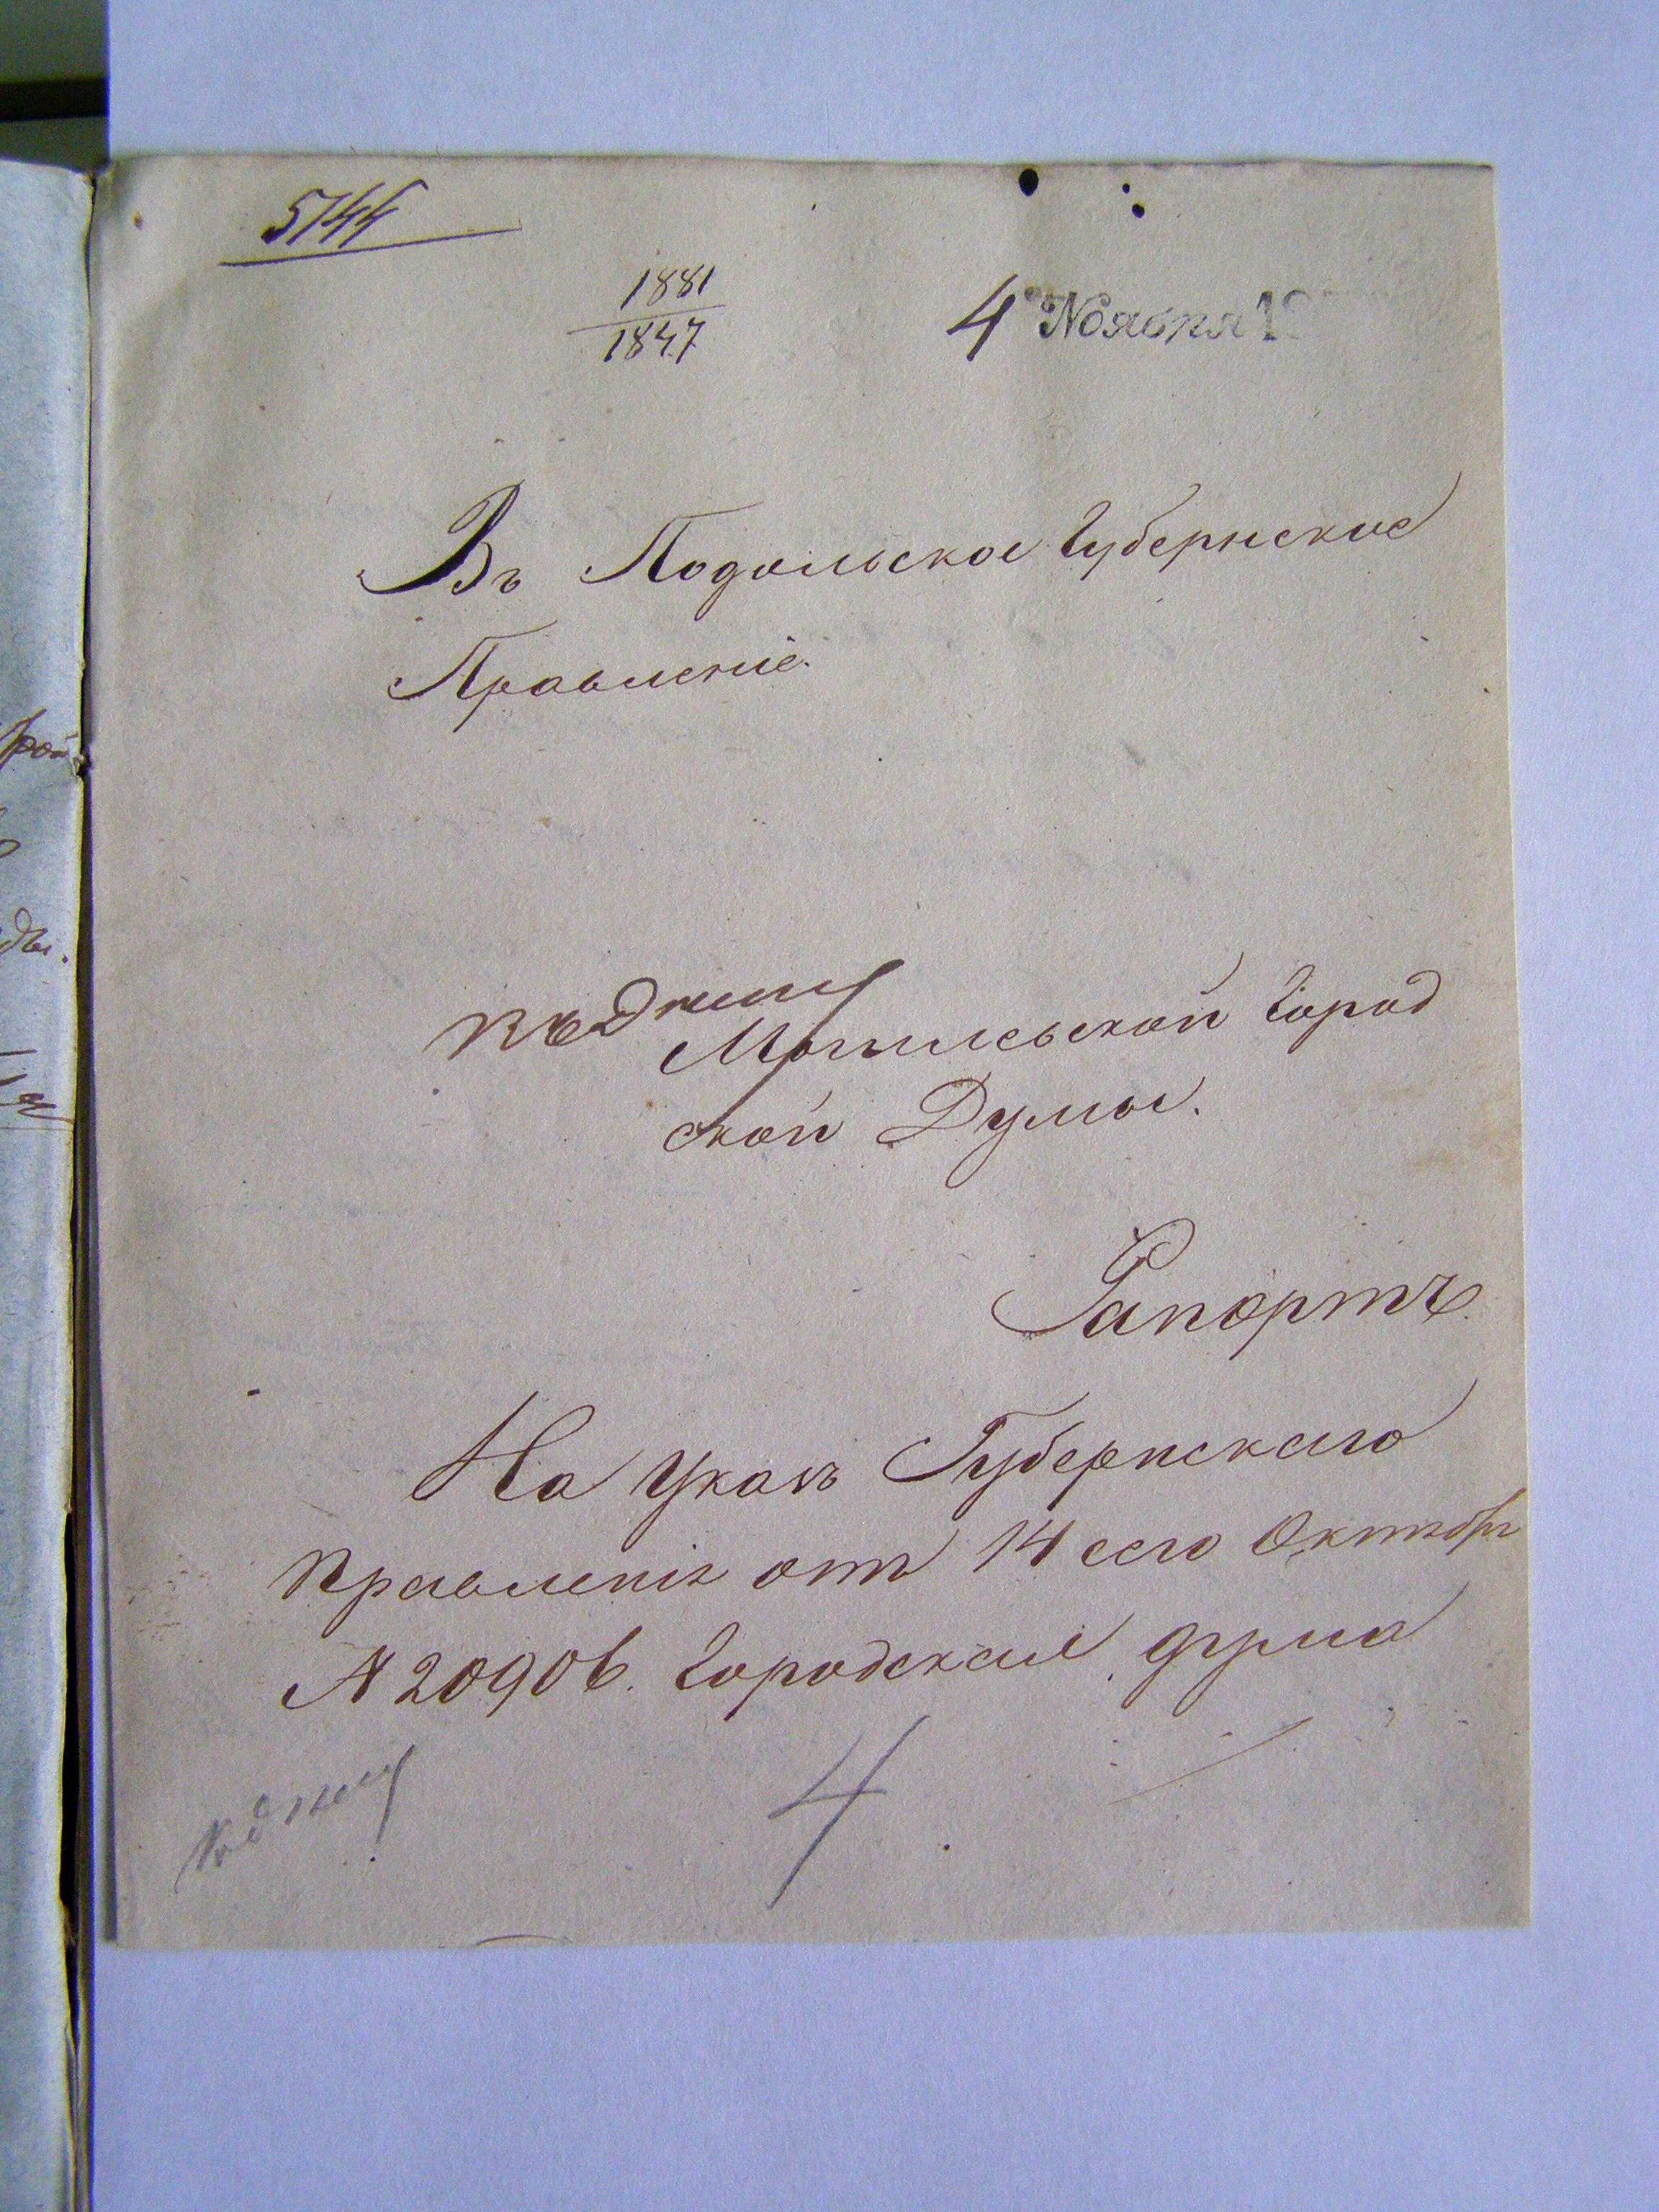 5144
1881
1847
4 Ноября 1
Въ Подольское Губернское
Правленіе.
къ дѣлу
Могилевской Город
ской Думы.
Рапортъ
На Указъ Губернскаго
Правленія отъ 14 сего Октября
№ 20906. Городская дума
Къ дѣлу
4